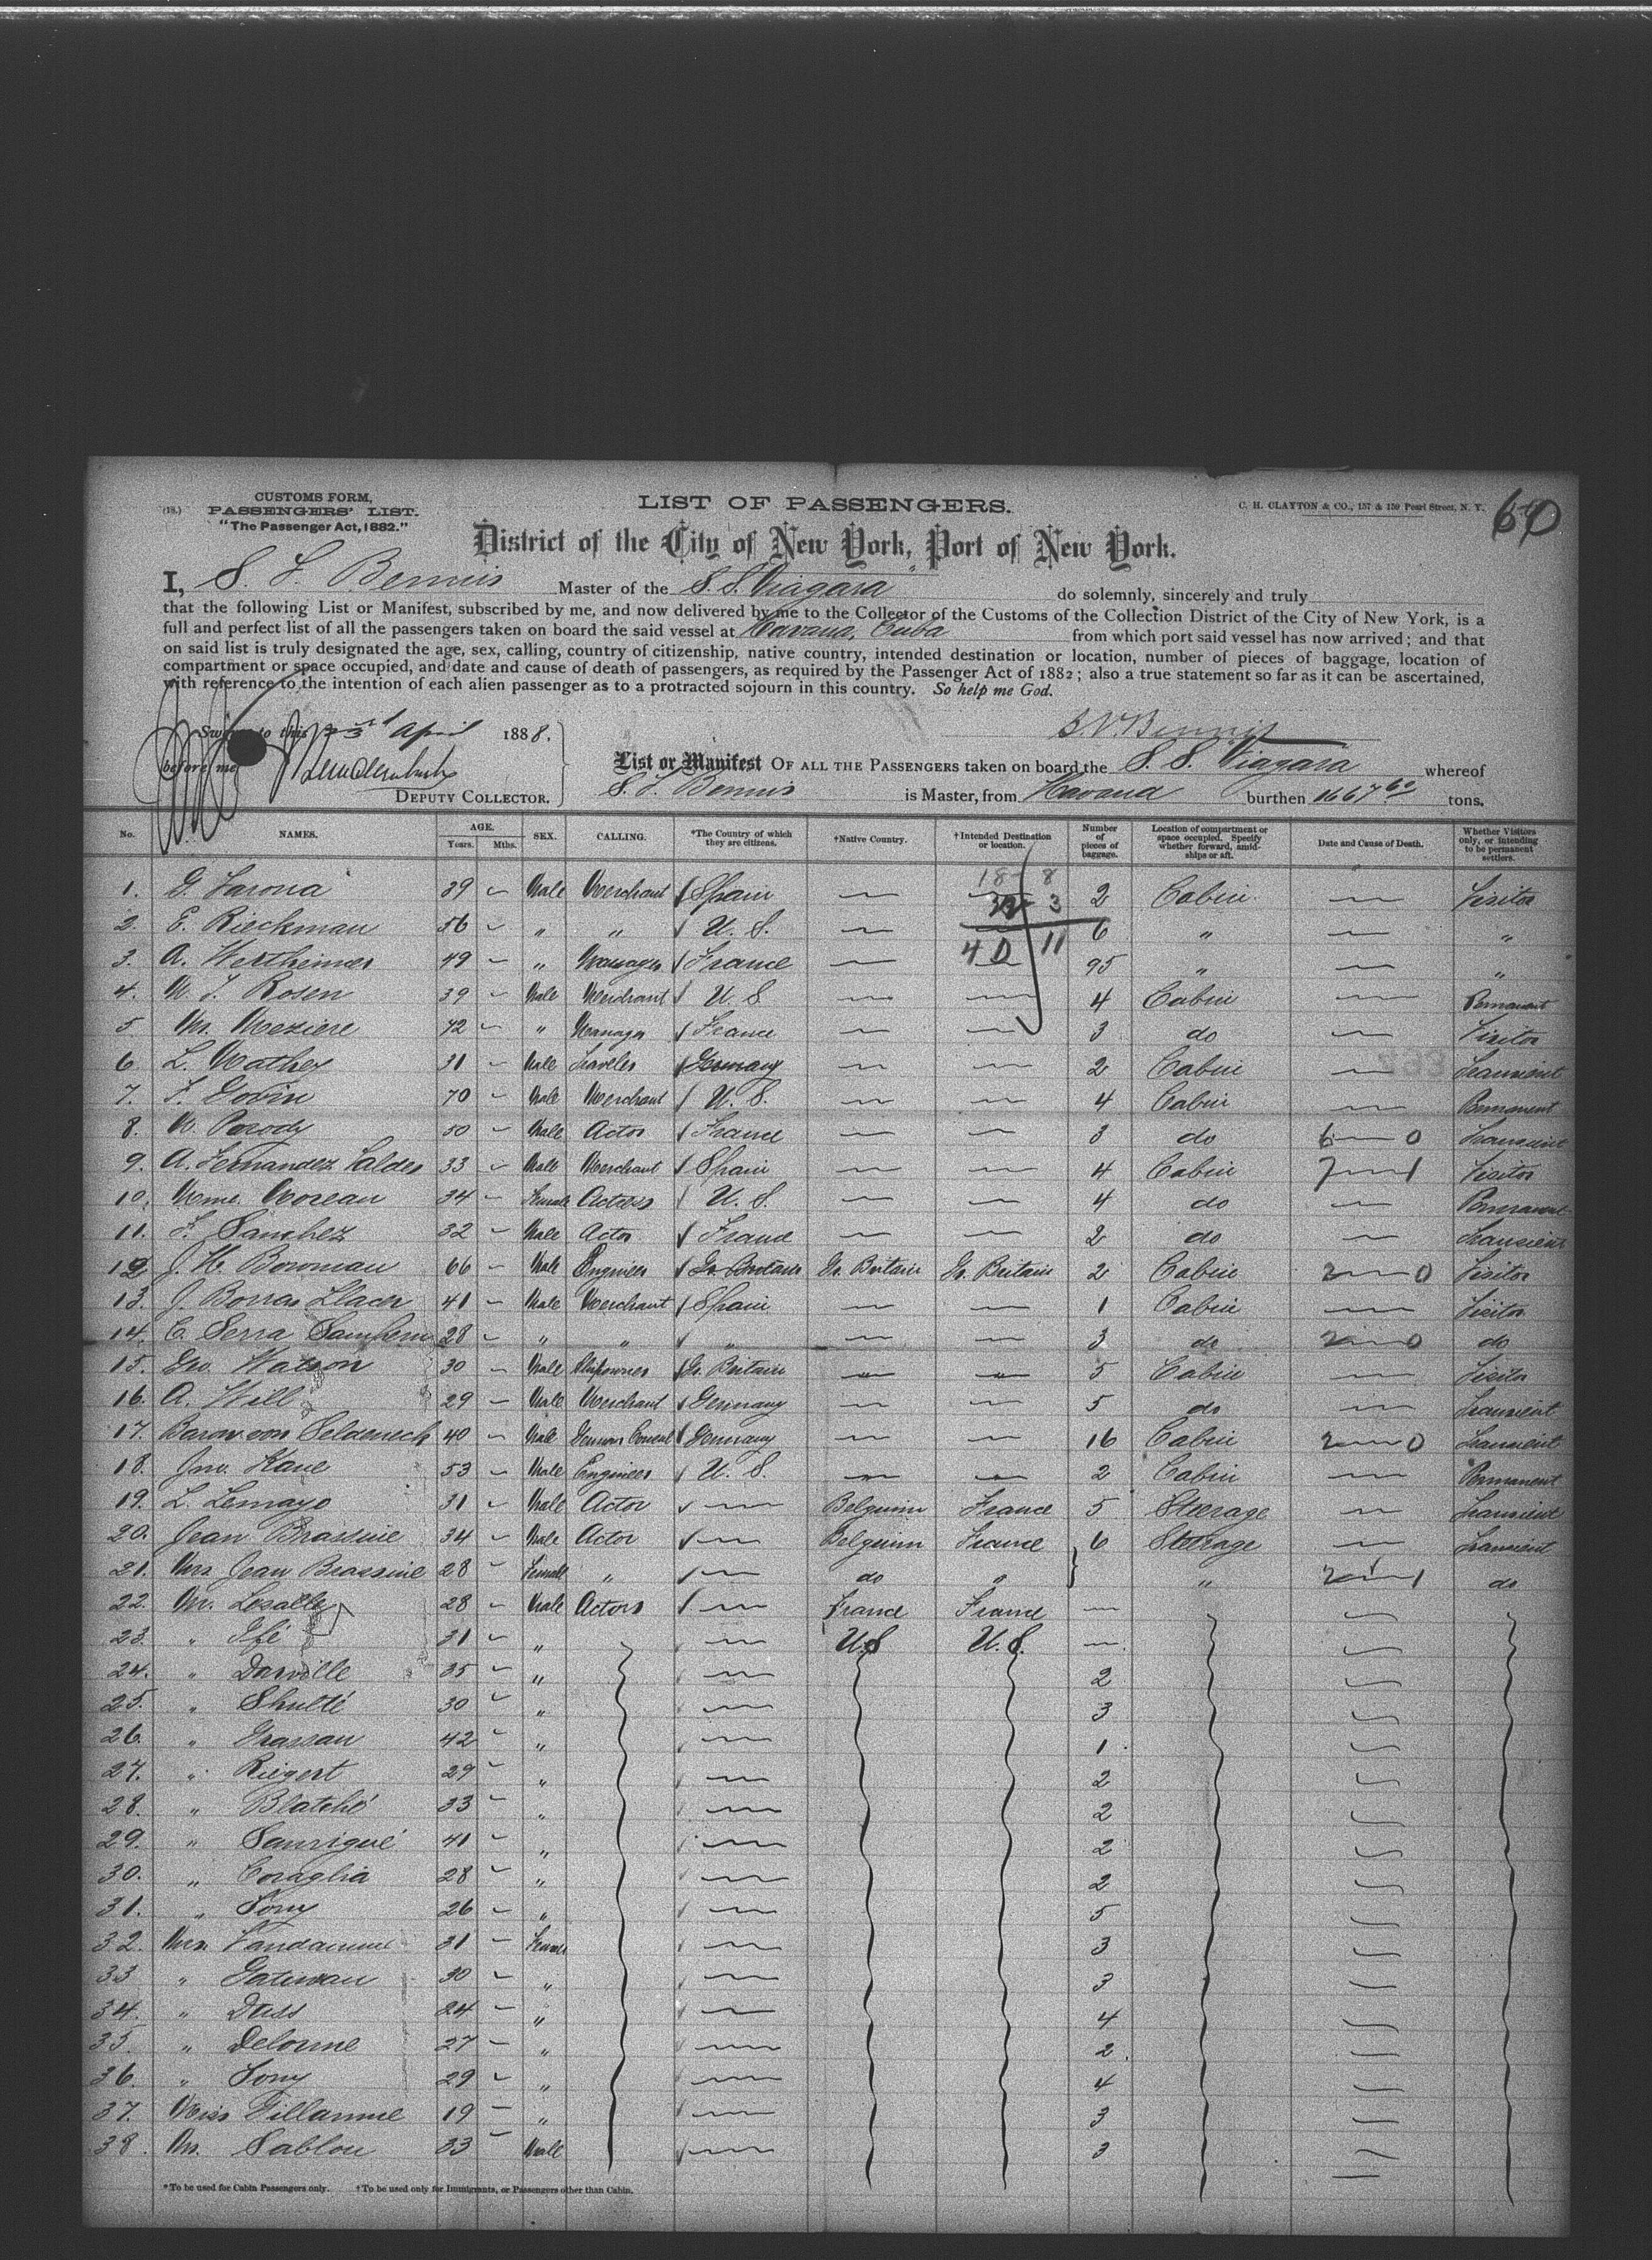 CUSTOMS FORM,
(18.) PASSENGERS' LIST.
"The Passenger Act, 1882."
LIST OF PASSENGERS.
C. H. CLAYTON & CO., 157 & 159 Pearl Street, N. Y.
60
District of the City of New York, Port of New York.
I, S. L. Bennis Master of the S. S. Niagara do solemnly, sincerely and truly
that the following List or Manifest, subscribed by me, and now delivered by me to the Collector of the Customs of the Collection District of the City of New York, is a
full and perfect list of all the passengers taken on board the said vessel at Havana, Cuba from which port said vessel has now arrived; and that
on said list is truly designated the age, sex, calling, country of citizenship, native country, intended destination or location, number of pieces of baggage, location of
compartment or space occupied, and date and cause of death of passengers, as required by the Passenger Act of 1882; also a true statement so far as it can be ascertained,
with reference to the intention of each alien passenger as to a protracted sojourn in this country. So help me God.
Sworn to this April 1888.
before me
DEPUTY COLLECTOR.
List or Manifest OF ALL THE PASSENGERS taken on board the S. S. Niagara whereof
S. L. Bennis is Master, from Havana burthen 1667 60 tons.
No. NAMES. AGE. Years. Mths. SEX. CALLING. *The Country of which they are citizens. †Native Country. †Intended Destination or location. Number of pieces of baggage. Location of compartment or space occupied. Specify whether forward, amidships or aft. Date and Cause of Death. Whether Visitors only, or intending to be permanent settlers.
18 8
3
40 11
1. G. Varona 39 Male Merchant Spain 2 Cabin Visitor
2. E. Rieckman 56 " " U. S. 6 " "
3. A. Wertheimer 49 " Manager France 95 " "
4. M. J. Rosen 39 Male Merchant U. S. 4 Cabin Permanent
5 M. Meziere 42 " Manager France 3 do Visitor
6 L. Mathey 31 Male Traveler Germany 2 Cabin Transient
7. F. Govin 70 Male Merchant U. S. 4 Cabin Permanent
8. M. Parody 50 Male Actor France 3 do 6 0 Transient
9. A. Fernandez Valdes 33 Male Merchant Spain 4 Cabin 7 1 Visitor
10. Mme. Moreau 34 Female Actress U. S. 4 do Permanent
11. F. Sanchez 32 Male Actor France 2 do Transient
12. J. H. Bowman 66 Male Engineer Gr. Britain Gr. Britain Gr. Britain 2 Cabin 2 0 Visitor
13. J. Borras Llacer 41 Male Merchant Spain 1 Cabin Visitor
14. C. Serra 28 " " " 3 do 2 0 do
15. Geo. Watson 30 Male Shipowner Gr. Britain 5 Cabin Visitor
16. A. Will 29 Male Merchant Germany 5 do Transient
17. Baron von Seldeneck 40 Male German Consul Germany 16 Cabin 2 0 Transient
18. Jno. Kane 53 Male Engineer U. S. 2 Cabin Permanent
19. L. Lemayo 31 Male Actor Belguim France 5 Steerage Transient
20. Jean Brassine 34 Male Actor Belguim France 6 Steerage Transient
21. Mrs Jean Brassine 28 Female " do " " 2 1 do
22. Mr. Lesalle 28 Male Actors France France
23. " Ifé 31 " U.S U. S.
24. " Darville 35 " 2
25. " Shulté 30 " 3
26. " Grassau 42 " 1
27. " Riegert 29 " 2
28. " Blatché 33 " 2
29. " Sanrigué 41 " 2
30. " Coraglia 28 " 2
31. " Tony 26 " 5
32. Mrs. Vandamme 31 Female 3
33 " Gatineau 30 " 3
34. " Dass 24 " 4
35. " Delorme 27 " 2
36. " Tony 29 " 4
37. Miss Villanne 19 " 3
38. Mr. Sablon 33 Male 3
*To be used for Cabin Passengers only. †To be used only for Immigrants, or Passengers other than Cabin.